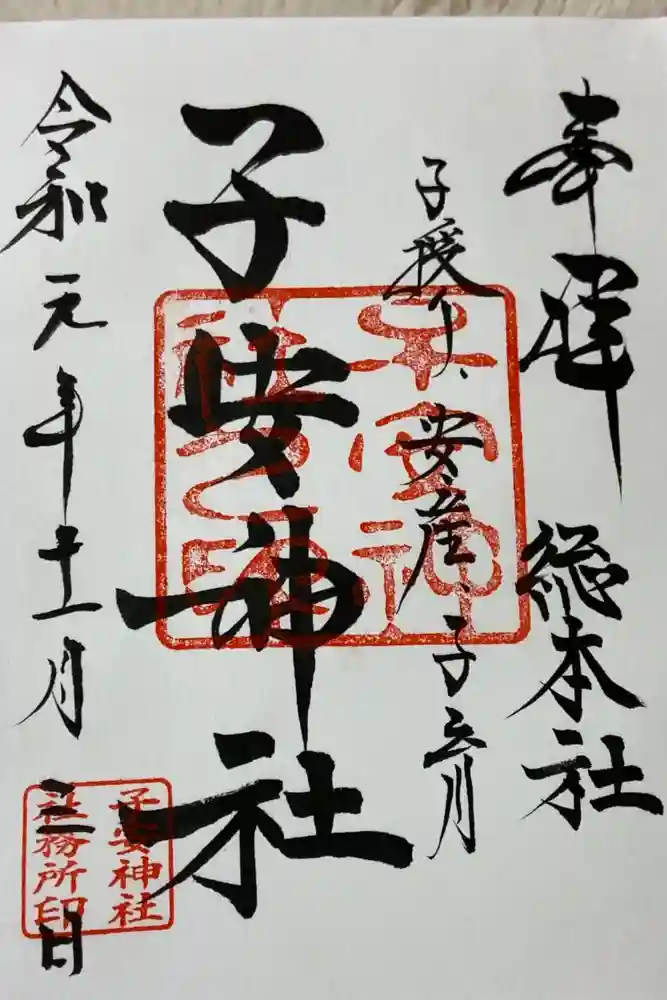 奉拝 総本社
子授け、安産、子育
子安神社
令和元年十一月三日
子安神社之印
子安神社
社務所印